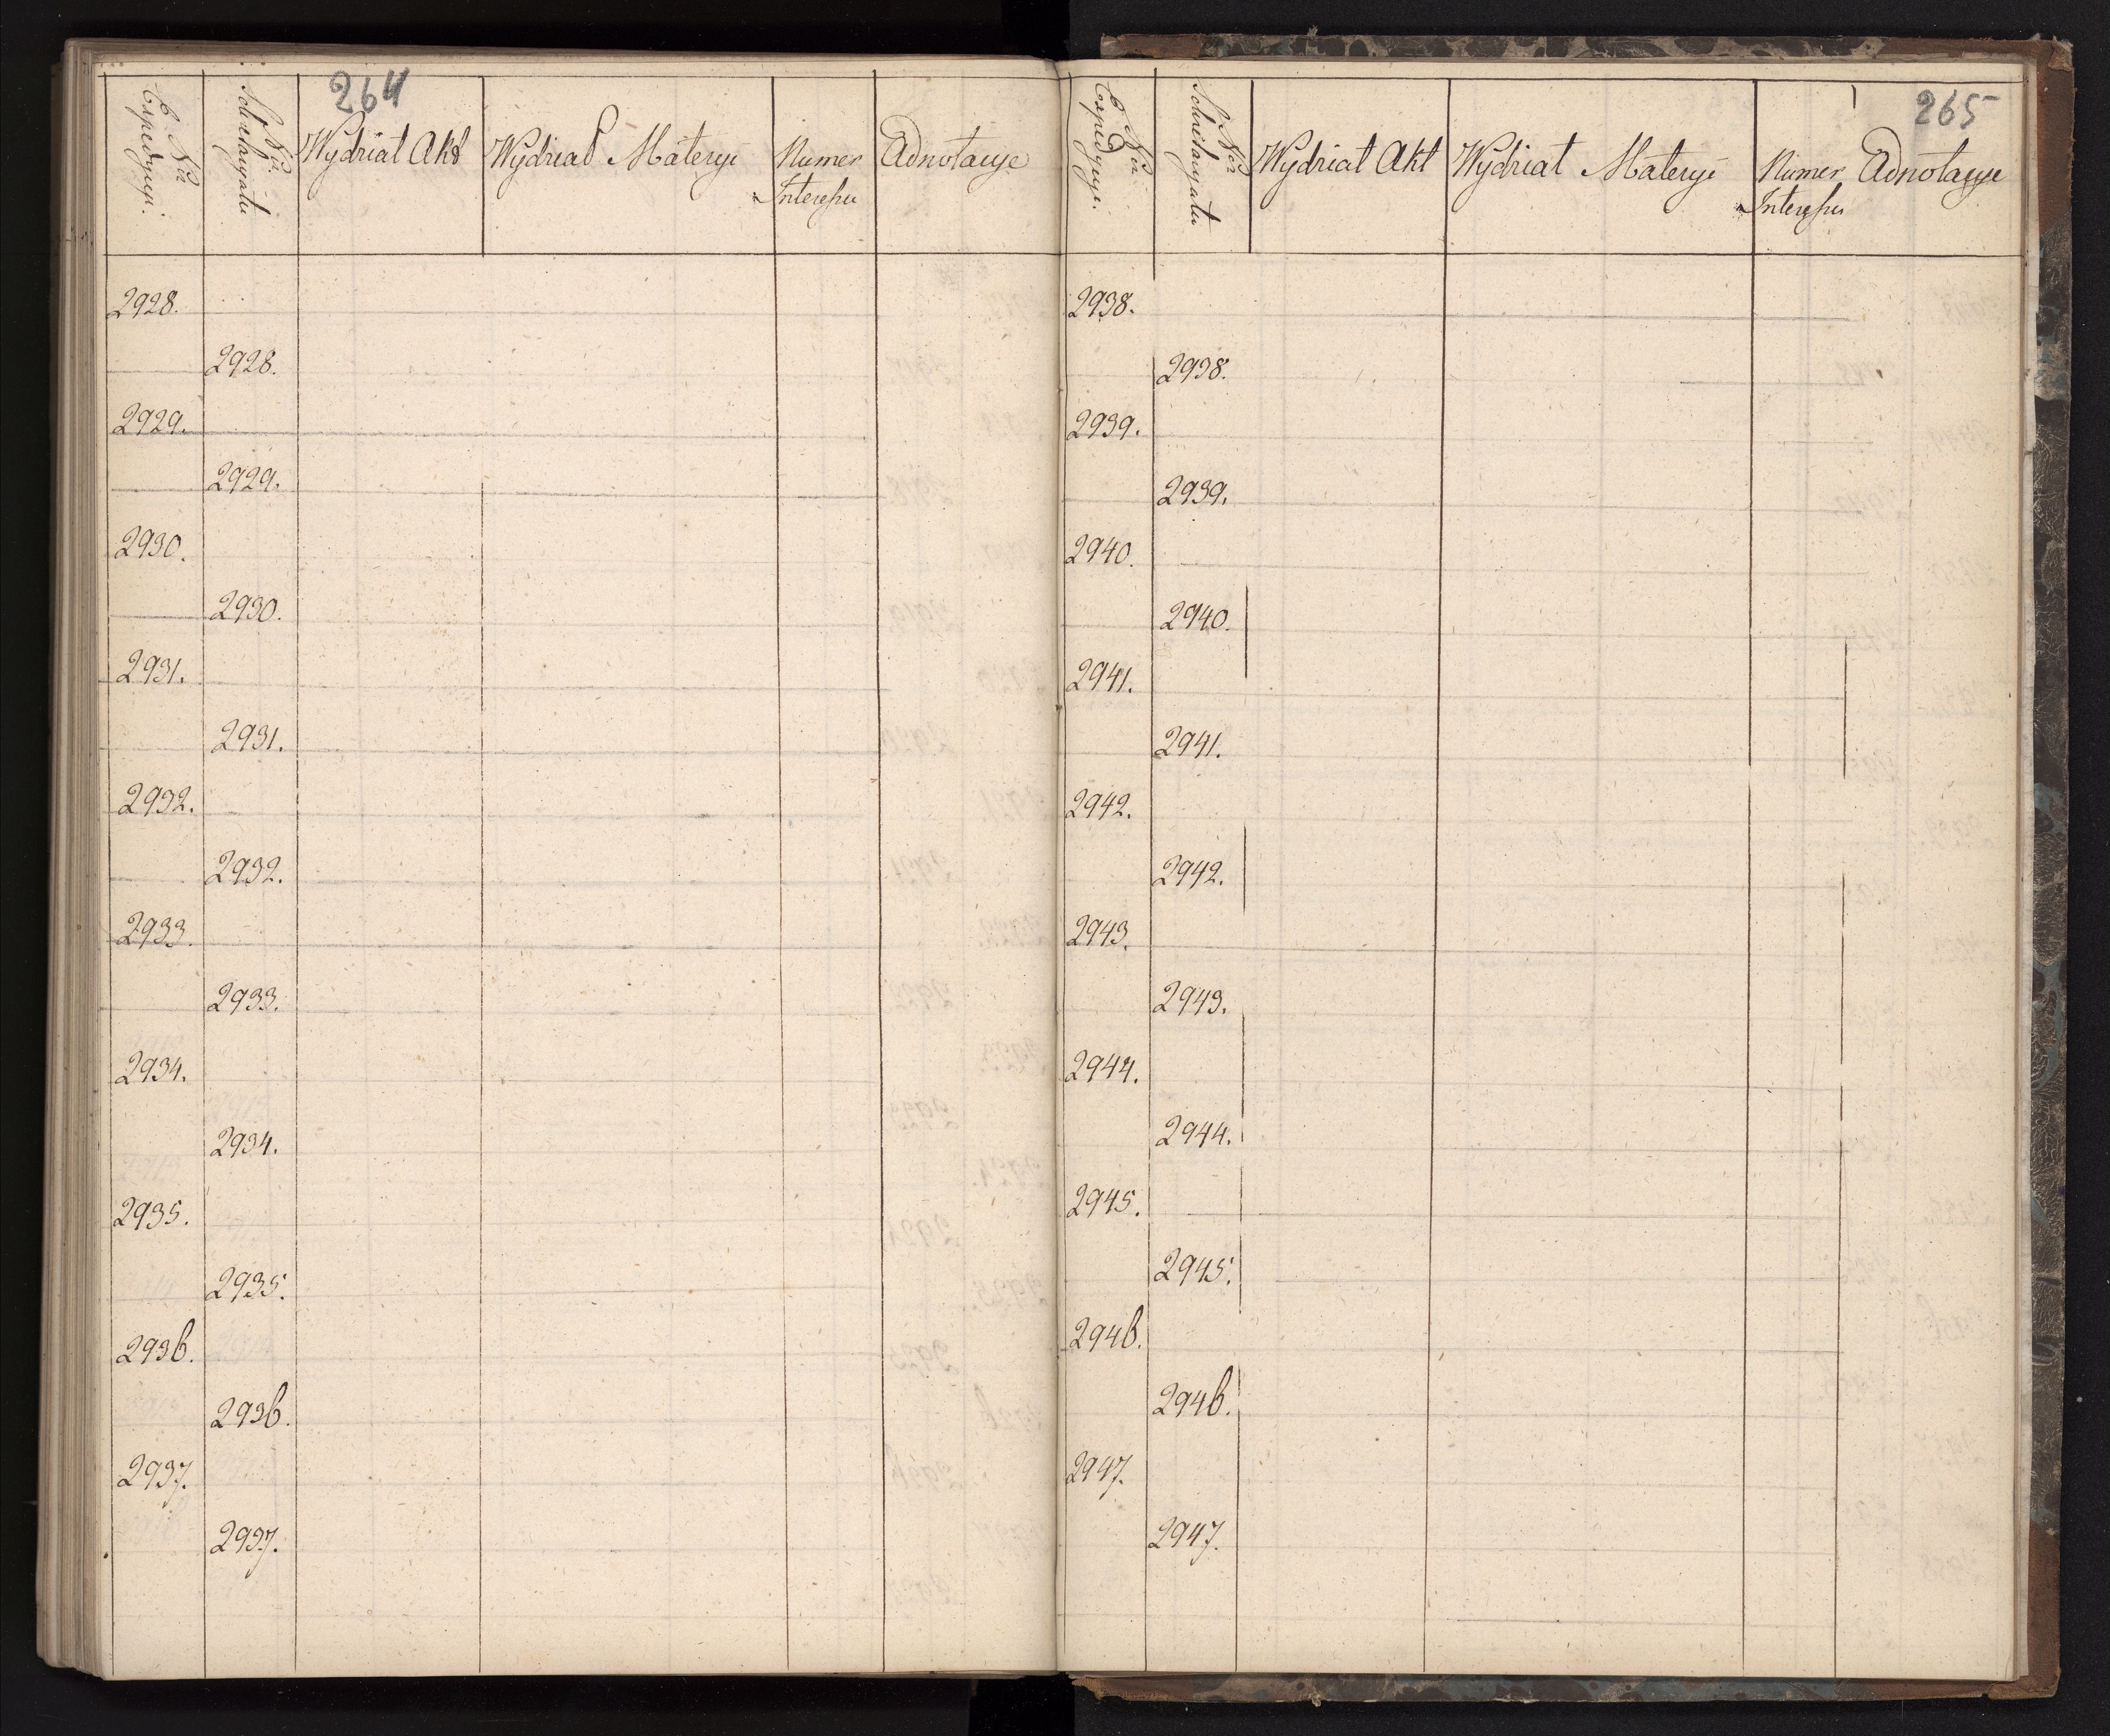 264
Nro Expedycyi.
Nro Sekretaryatu
Wydział Akt
Wydział Materyi
Numer Interessu
Adnotacye
2928.
2928.
2929.
2929.
2930.
2930.
2931.
2931.
2932.
2932.
2933.
2933.
2934.
2934.
2935.
2935.
2936.
2936.
2937.
2937.
265
Nro Expedycyi.
Nro Sekretaryatu
Wydział Akt
Wydział Materyi
Numer Interessu
Adnotacye
2938.
2938.
2939.
2939.
2940.
2940.
2941.
2941.
2942.
2942.
2943.
2943.
2944.
2944.
2945.
2945.
2946.
2946.
2947.
2947.